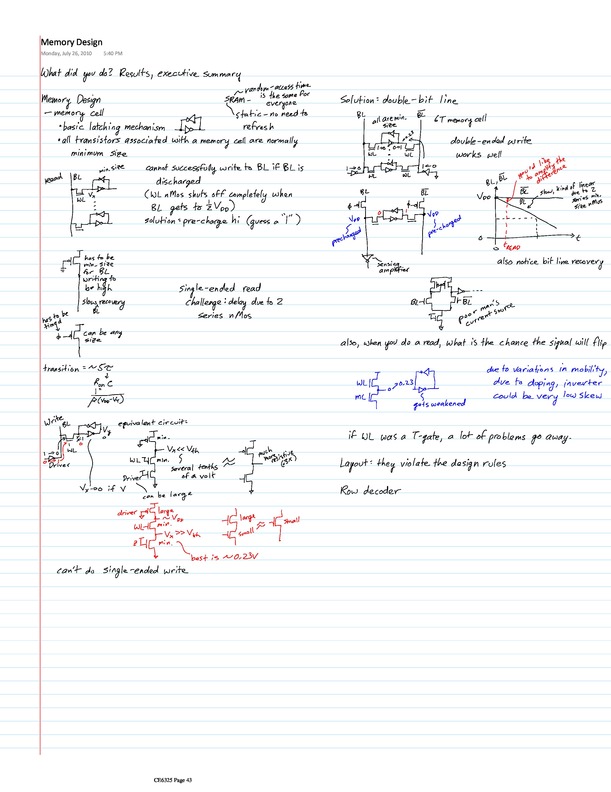 Memory Design
Monday, July 26, 2010 5:40 PM
What did you do? Results, executive summary
Memory Design
– memory cell
• basic latching mechanism
• all transistors associated with a memory cell are normally
minimum size
SRAM – random-access time
is the same for
everyone
static – no need to
refresh
read
BL
min. size
WL
Vx
cannot successfully write to BL if BL is
discharged
(WL nMos shuts off completely when
BL gets to ½ VDD)
solution: pre-charge hi (guess a "1")
has to be
min. size
for BL
writing to
be high
slow recovery
BL
has to be
can be any
size
single-ended read
challenge: delay due to 2
series nMos
transition = ~5τ
Ron C
1
β(VDD-Vt)
Write
BL
WL
Vy
Driver
Vx→0 if V
equivalent circuit:
min.
Vx << Vth
WL
min.
several tenths
of a volt
Driver
can be large
much
more resistive
driver
large
~VDD
WL
min.
Vx >> Vth
min.
best is ~0.23V
large
small
≈
small
can't do single-ended write
Solution: double-bit line
BL
all are min.
size
BL
6T memory cell
WL
WL
double-ended write
works well
BL
BL
VDD
VDD
precharged
pre-charged
sensing
amplifier
BL, BL
VDD
would like
to amplify the
difference
BL
slow, kind of linear
due to 2
series min.
size nMos
BL
tREAD
t
also notice bit line recovery
BL
BL
poor man's
current source
also, when you do a read, what is the chance the signal will flip
WL
ML
0.23
gets weakened
due to variations in mobility,
due to doping, inverter
could be very low skew
if WL was a T-gate, a lot of problems go away.
Layout: they violate the design rules
Row decoder
CE6325 Page 43